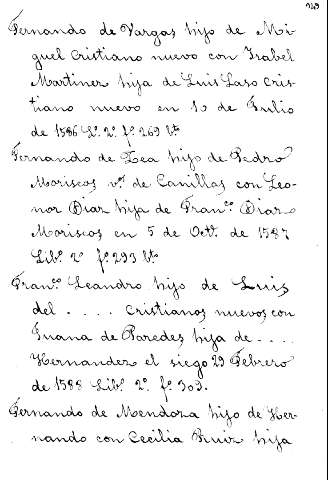 Fernando de Vargas hijo de Mi-
guel Cristiano nuevo con Isabel
Martinez hija de Luis Laso cris-
tiano nuevo en 10 de Julio
de 1586 Lº. 2º. fº 269 bto
Fernando de Zea hijo de Pedro
Moriscos vº. de Canillas con Leo-
nor Diaz hija de Franco. Diaz
Moriscos en 5 de Octe. de 1587
Libº. 2º fº 293 bto
Franco. Leandro hijo de Luis
del . . . . cristianos nuevos con
Juana de Paredes hija de . . . .
Hernandez el siego 29 Febrero
de 1588 Libº. 2º. fº 303.
Fernando de Mendoza hijo de Her-
nando con Cecilia Ruiz hija